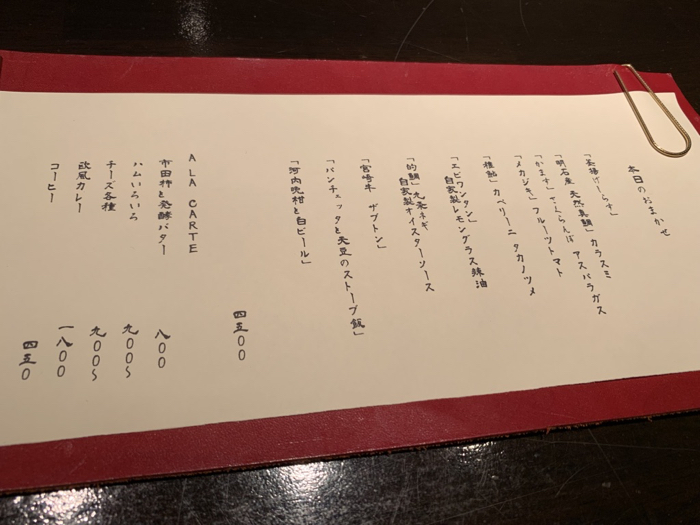 本日のおまかせ
「長揚げしらす」カラスミ
「明石産 天然真鯛」アスパラガス
「かます」さくらんぼ
「メカジキ」フルーツトマト
「雅鮨」カペリーニ タカノツメ
「エビワンタン」
自家製レモングラス辣油
「的鯛」九条ネギ
自家製オイスターソース
「宮崎牛 ザブトン」
「パンチェッタと天豆のストーブ飯」
「河内晩柑と白ビール」
四五〇〇
ALA CARTE
市田柿と発酵バター 八〇〇
ハムいろいろ 九〇〇〜
チーズ各種 九〇〇〜
欧風カレー 一八〇〇
コーヒー 四五〇